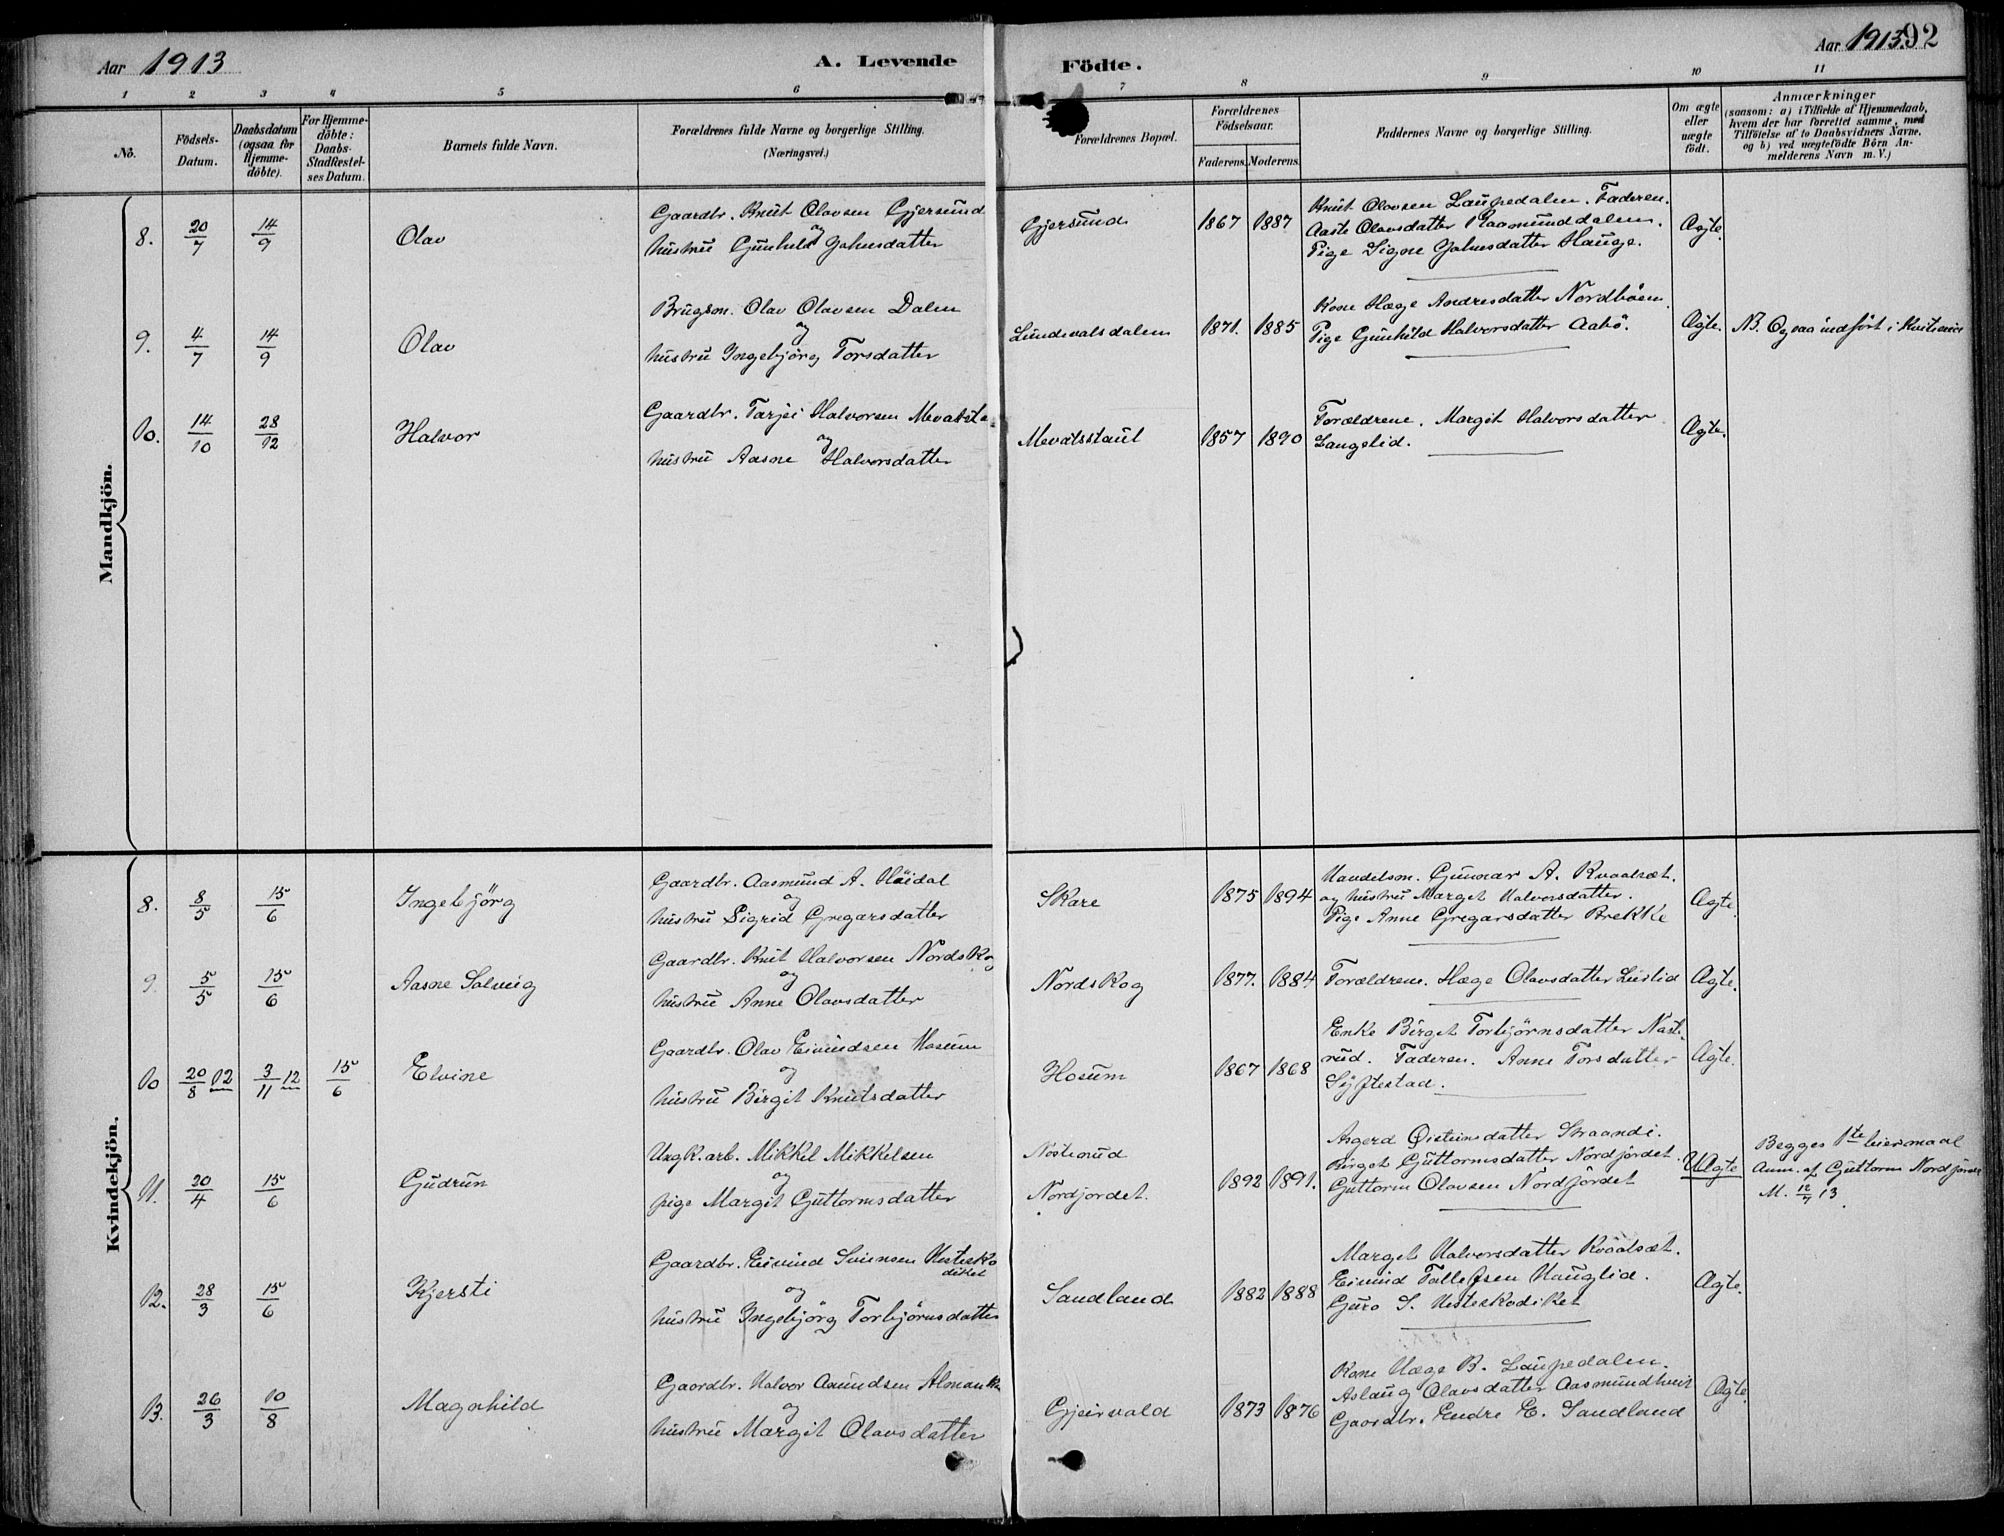 Aar 1913
A. Levende
Födte.
Aar 1913.
92
1 2 3 4 5 6 7 8 9 10 11
No.
Födsels-
Datum.
Daabsdatum
(ogsaa for
Hjemme-
döbte).
For Hjemme-
döbte:
Daabs-
Stadfestel-
ses Datum.
Barnets fulde Navn.
Forældrenes fulde Navne og borgerlige Stilling.
(Næringsvei.)
Forældrenes Bopæl.
Forældrenes
Födselsaar.
Faderens. Moderens.
Faddernes Navne og borgerlige Stilling.
Om ægte
eller
uægte
födt.
Anmærkninger
(saasom: a) i Tilfælde af Hjemmedaab,
hvem der har forrettet samme, med
Tilföielse af to Daabsvidners Navne.
og b) ved uægtefödte Börn An-
melderens Navn m. V.)
Mandkjön.
8. 20/7 14/9 Olav
Gaardbr. Knut Olavsen Gjersund
og
hustru Gunhild Johnsdatter
Gjersund 1867 1887
Knut Olavsen Laupedalen. Faderen.
Aaste Olavsdatter Raamunddalen.
Pige Signe Johnsdatter Hauge.
Ægte.
9. 4/7 14/9 Olav
Brugsm. Olav Olavsen Dalen
og
hustru Ingebjörg Torsdatter
Lundevalsdalen 1871. 1885
Kone Hæge Andresdatter Nordböen.
Pige Gunhild Halvorsdatter Aabö.
Ægte. NB. Ogsaa indfört i
10. 14/10 28/12 Halvor
Gaardbr. Tarjei Halvorsen
og
hustru Aasne Halvorsdatter
Mevatsstaul 1857 1890
Forældrene. Margit Halvorsdatter
Langelid.
Ægte.
Kvindekjön.
8. 8/5 15/6 Ingebjörg
Gaardbr. Aasmund A. Höidal
og
hustru Sigrid Gregarsdatter
Skare 1875 1894
Handelsm. Gunnar A. Kvaalsæt.
og hustru Marget Halvorsdatter.
Pige Anne Gregarsdatter Brekke
Ægte.
9. 5/5 15/6 Aasne Solveig
Gaardbr. Knut Halvorsen Nordskog
og
hustru Anne Olavsdatter
Nordskog 1877. 1884.
Forældrene. Hæge Olavsdatter Lislid
Ægte.
10 20/8 12 3/11 12 15/6 Elvine
Gaardbr. Olav Eivindsen Hosum
og
hustru Birgit Knutsdatter
Hosum 1867 1868
Enke Birget Torbjörnsdatter Nast-
rud. Faderen. Anne Torsdatter
Syftestad.
Ægte.
11. 20/4 15/6 Gudrun
Ungk. arb. Mikkel Mikkelsen
og
pige Margit Guttormsdatter
Nösterud
Nordjordet. 1892 1891.
Asgerd Öisteinsdatter Straandi.
Birget Guttormsdatter Nordjordet.
Guttorm Olavsen Nordjordet
UÆgte
Begges 1ste leiermaal
Anm. af Guttorm Nordjordet
M. 12/7 13.
12. 28/3 15/6 Kjersti
Gaardbr. Eivind Sveinsen Hestesko
diket
og
hustru Ingebjörg Torbjörnsdatter
Sandland 1882 1888
Marget Halvorsdatter Kvaalsæt.
Eivind Tallefsen Hauglid.
Guro S. Hesteskodiket
Ægte.
13. 26/3 10/8 Magnhild
Gaardbr. Halvor Amundsen
og
hustru Margit Olavsdatter
Gjeirvald 1873 1876
Kone Hæge B. Laupedalen.
Aslaug Olavsdatter Aasmundtveit
Gaardbr. Endre E. Sandland
Ægte.